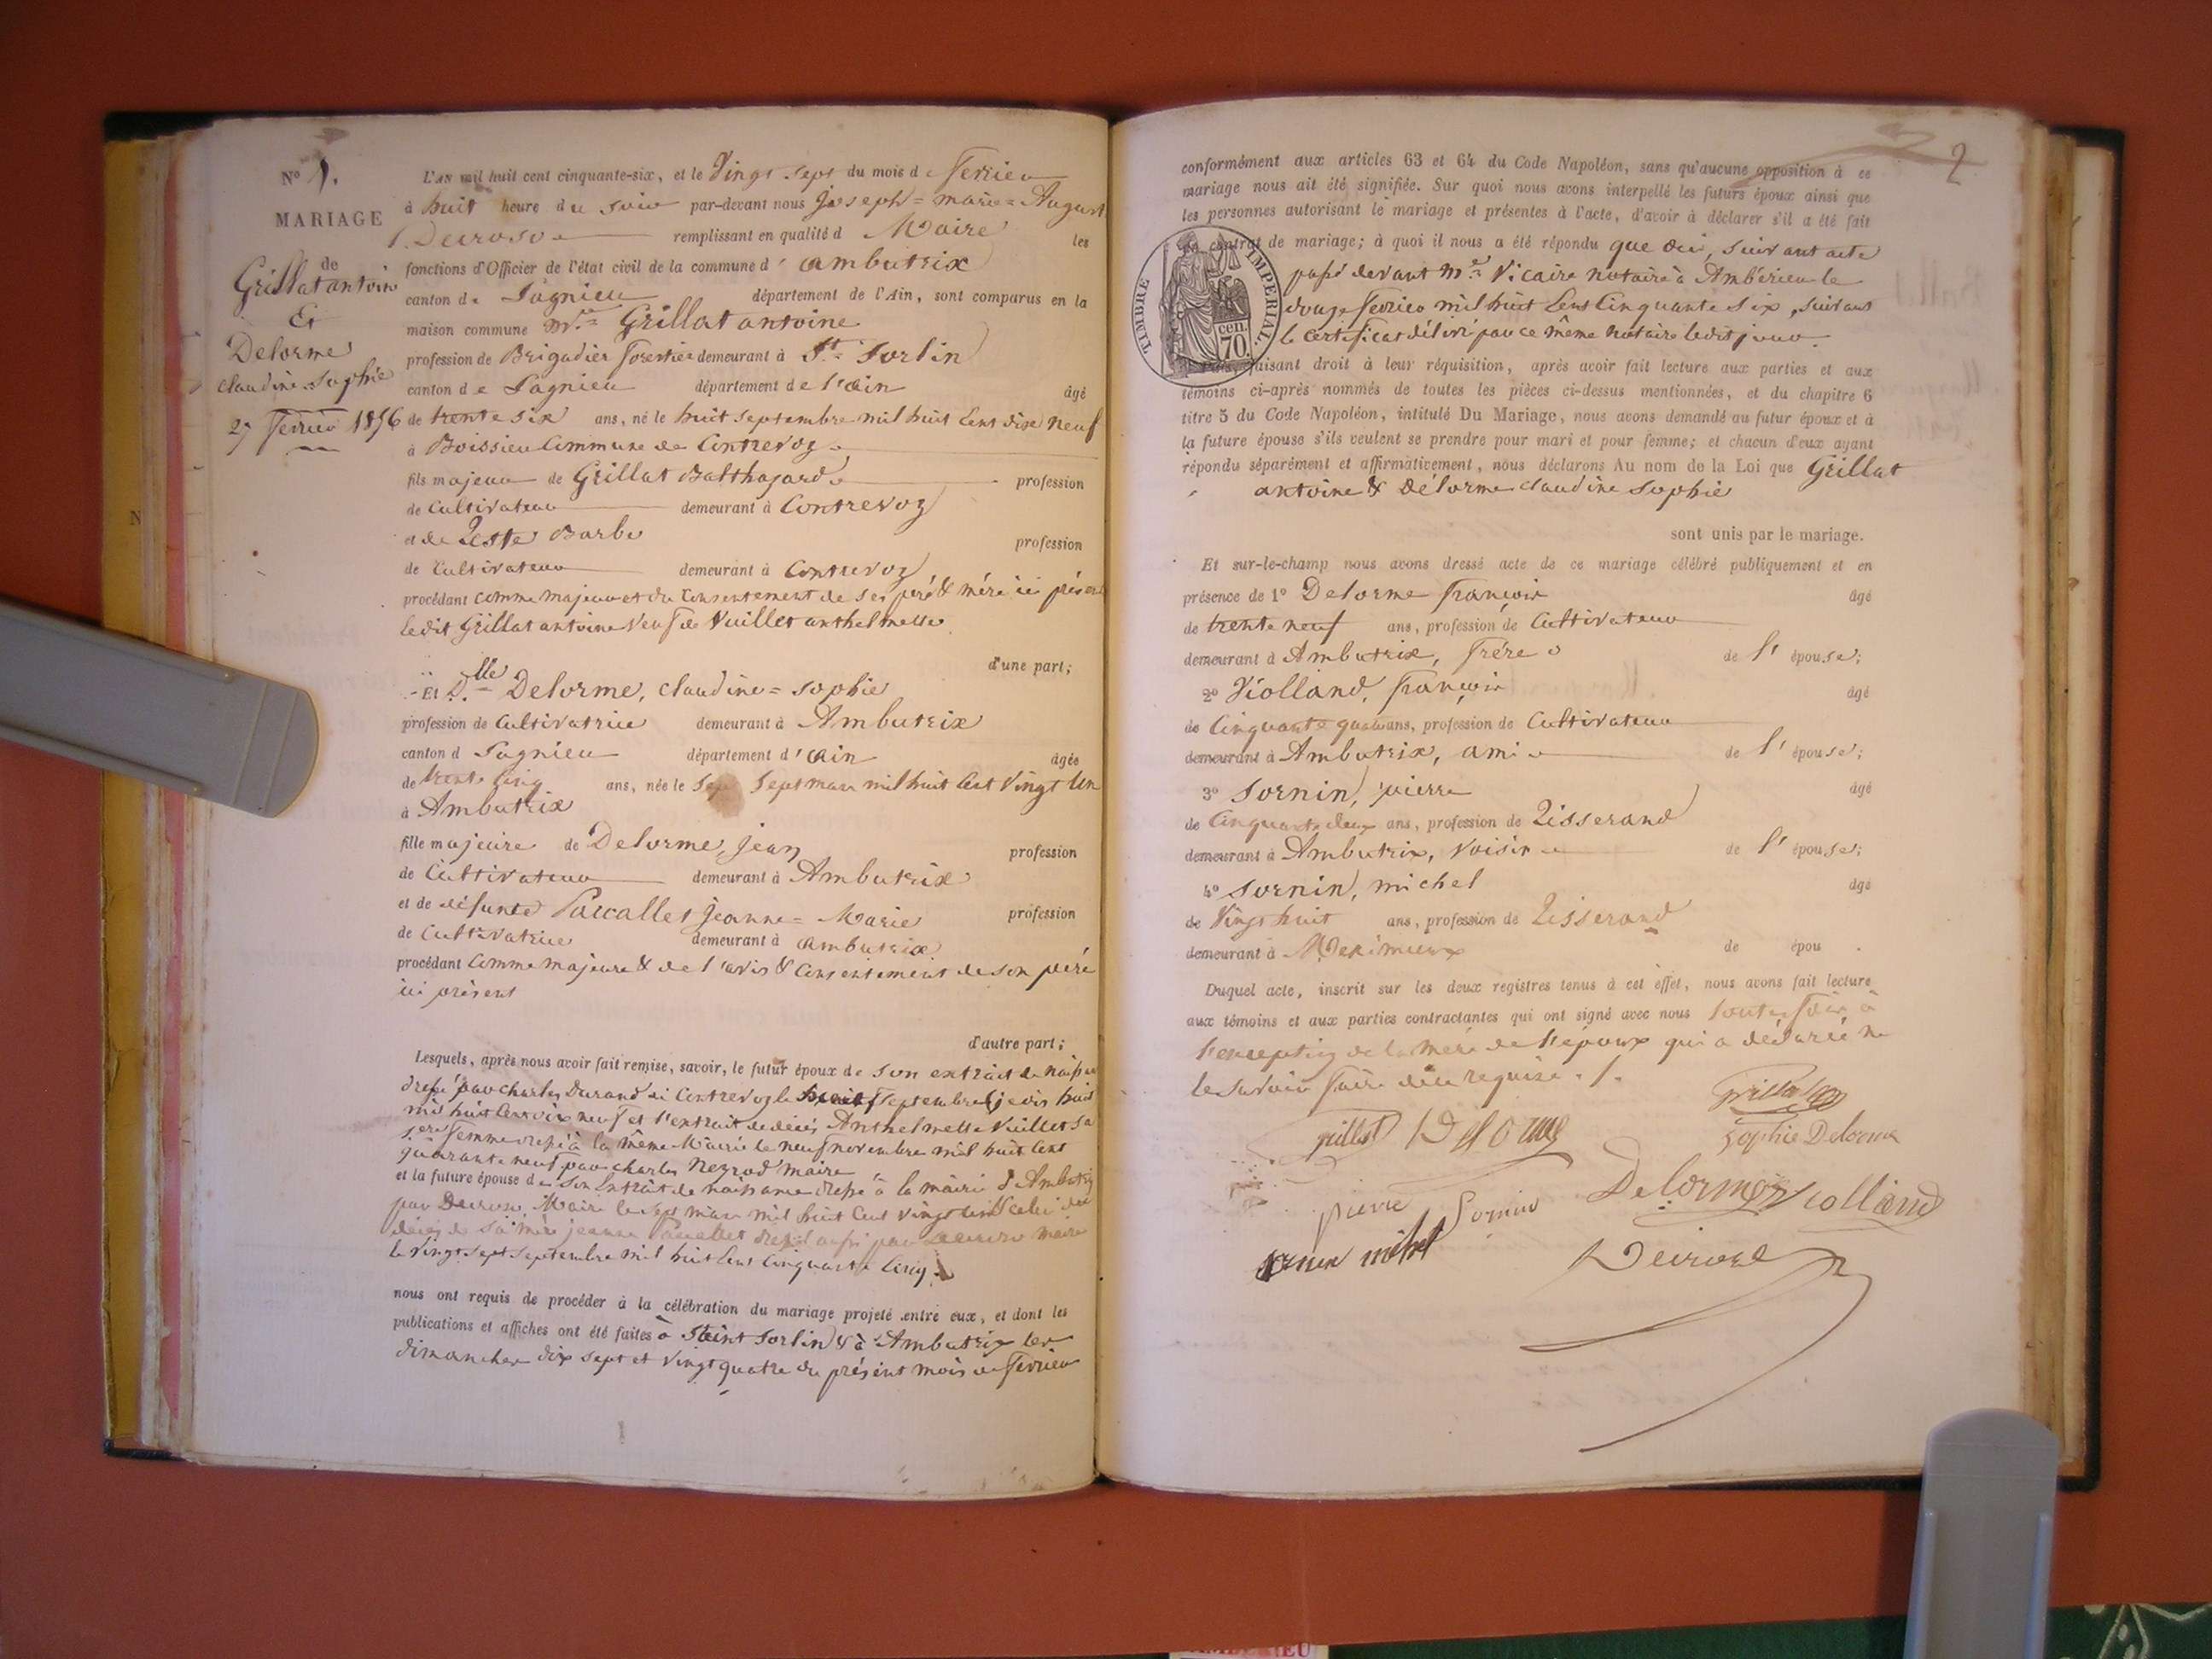 N° 1.
MARIAGE
de
Grillat antoine
Et
Delorme
claudine Sophie
27 fevrier 1856
L'AN mil huit cent cinquante-six, et le Vingt sept du mois de fevrier
à huit heure du soir par-devant nous Joseph = marie = August
remplissant en qualité d Maire les
fonctions d'Officier de l'état civil de la commune d' ambutrix
canton de Lagnieu département de l'Ain, sont comparus en la
maison commune Grillat antoine
profession de Brigadier forestier demeurant à St Sorlin
canton de Lagnieu département de l'ain âgé
de trente six ans, né le huit septembre mil huit Cent dix neuf
à Boissieu Commune de Contrevoz
fils majeur de Grillat Balthazard profession
de Cultivateur demeurant à Contrevoz
et de Teste Barbe profession
de Cultivateur demeurant à Contrevoz
procédant comme majeur et du Consentement de ses péré & méré ici présent
ledit Grillat antoine Veuf de Vuillet anthelmette
d'une part;
Et Dlle Delorme, claudine = sophie
profession de Cultivatrice demeurant à Ambutrix
canton d Lagnieu département d' ain âgée
de trente cinq ans, née le Sept mars mil huit Cent Vingt Un
à Ambutrix
fille majeure de Delorme, Jean profession
de Cultivateur demeurant à Ambutrix
et de défunte Jeanne = Marie profession
de Cultivatrice demeurant à ambutrix
procédant Comme majeure & de l'avis & Consentement de son péré
ici présent
d'autre part;
Lesquels, après nous avoir fait remise, savoir, le futur époux de son extrait de
par Charles Durand Contrevoz le septembre
mil huit Cent dix neuf et l'extrait de décès Anthelmette Vuillet sa
femme à la même Mairie le neuf novembre mil huit Cent
quarante neuf par charles maire
et la future épouse de son Extrait de naissance à la mairie d'Ambutrix
par Maire le Sept mars mil huit Cent Vingt Un & celui du
décès de sa méré jeanne par maire
le Vingt sept septembre mil huit Cent Cinquante Cinq.
nous ont requis de procéder à la célébration du mariage projeté entre eux, et dont les
publications et affiches ont été faites à Saint Sorlin & à Ambutrix les
dimanches dix sept et vingt quatre du présent mois de fevrier
2
conformément aux articles 63 et 64 du Code Napoléon, sans qu'aucune opposition à ce
mariage nous ait été signifiée. Sur quoi nous avons interpellé les futurs époux ainsi que
les personnes autorisant le mariage et présentes à l'acte, d'avoir à déclarer s'il a été fait
contrat de mariage; à quoi il nous a été répondu que oui, suivant acte
passé devant Me Vicaire notaire à Ambérieu le
douze fevrier mil huit Cent Cinquante six, suivant
le certificat délivré par ce même notaire ledit jour.
TIMBRE IMPERIAL
70 cen.
faisant droit à leur réquisition, après avoir fait lecture aux parties et aux
témoins ci-après nommés de toutes les pièces ci-dessus mentionnées, et du chapitre 6
titre 5 du Code Napoléon, intitulé Du Mariage, nous avons demandé au futur époux et à
la future épouse s'ils veulent se prendre pour mari et pour femme; et chacun d'eux ayant
répondu séparément et affirmativement, nous déclarons Au nom de la Loi que Grillat
antoine & Délorme claudine sophie
sont unis par le mariage.
Et sur-le-champ nous avons dressé acte de ce mariage célébré publiquement et en
présence de 1° Delorme françois âgé
de trente neuf ans, profession de Cultivateur
demeurant à Ambutrix, frére de l' épouse;
2° Violland, françois âgé
de Cinquante quatre ans, profession de Cultivateur
demeurant à Ambutrix, ami de l' épouse;
3° Sornin, pierre âgé
de Cinquante deux ans, profession de Tisserand
demeurant à Ambutrix, voisin de l' épouse;
4° Sornin, michel âgé
de Vingt huit ans, profession de Tisserand
demeurant à Meximieux de épou .
Duquel acte, inscrit sur les deux registres tenus à cet effet, nous avons fait lecture
aux témoins et aux parties contractantes qui ont signé avec nous toutefois à
l'exception de la méré de l'époux qui a déclarée ne
le savoir faire de ce requise ./.
grillat
Sophie Delorme
pierre Sornin Delorme Violland
sornin michel